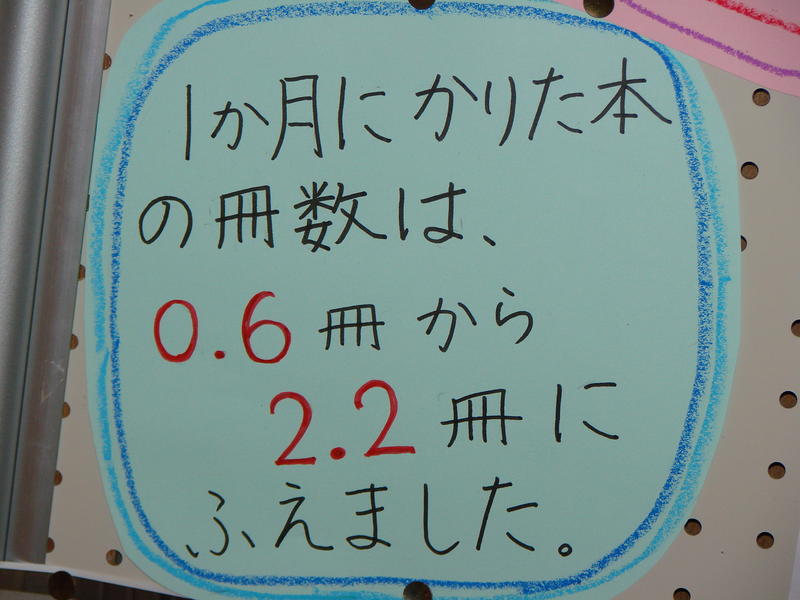 1か月にかりた本
の冊数は、
0.6冊から
2.2冊に
ふえました。